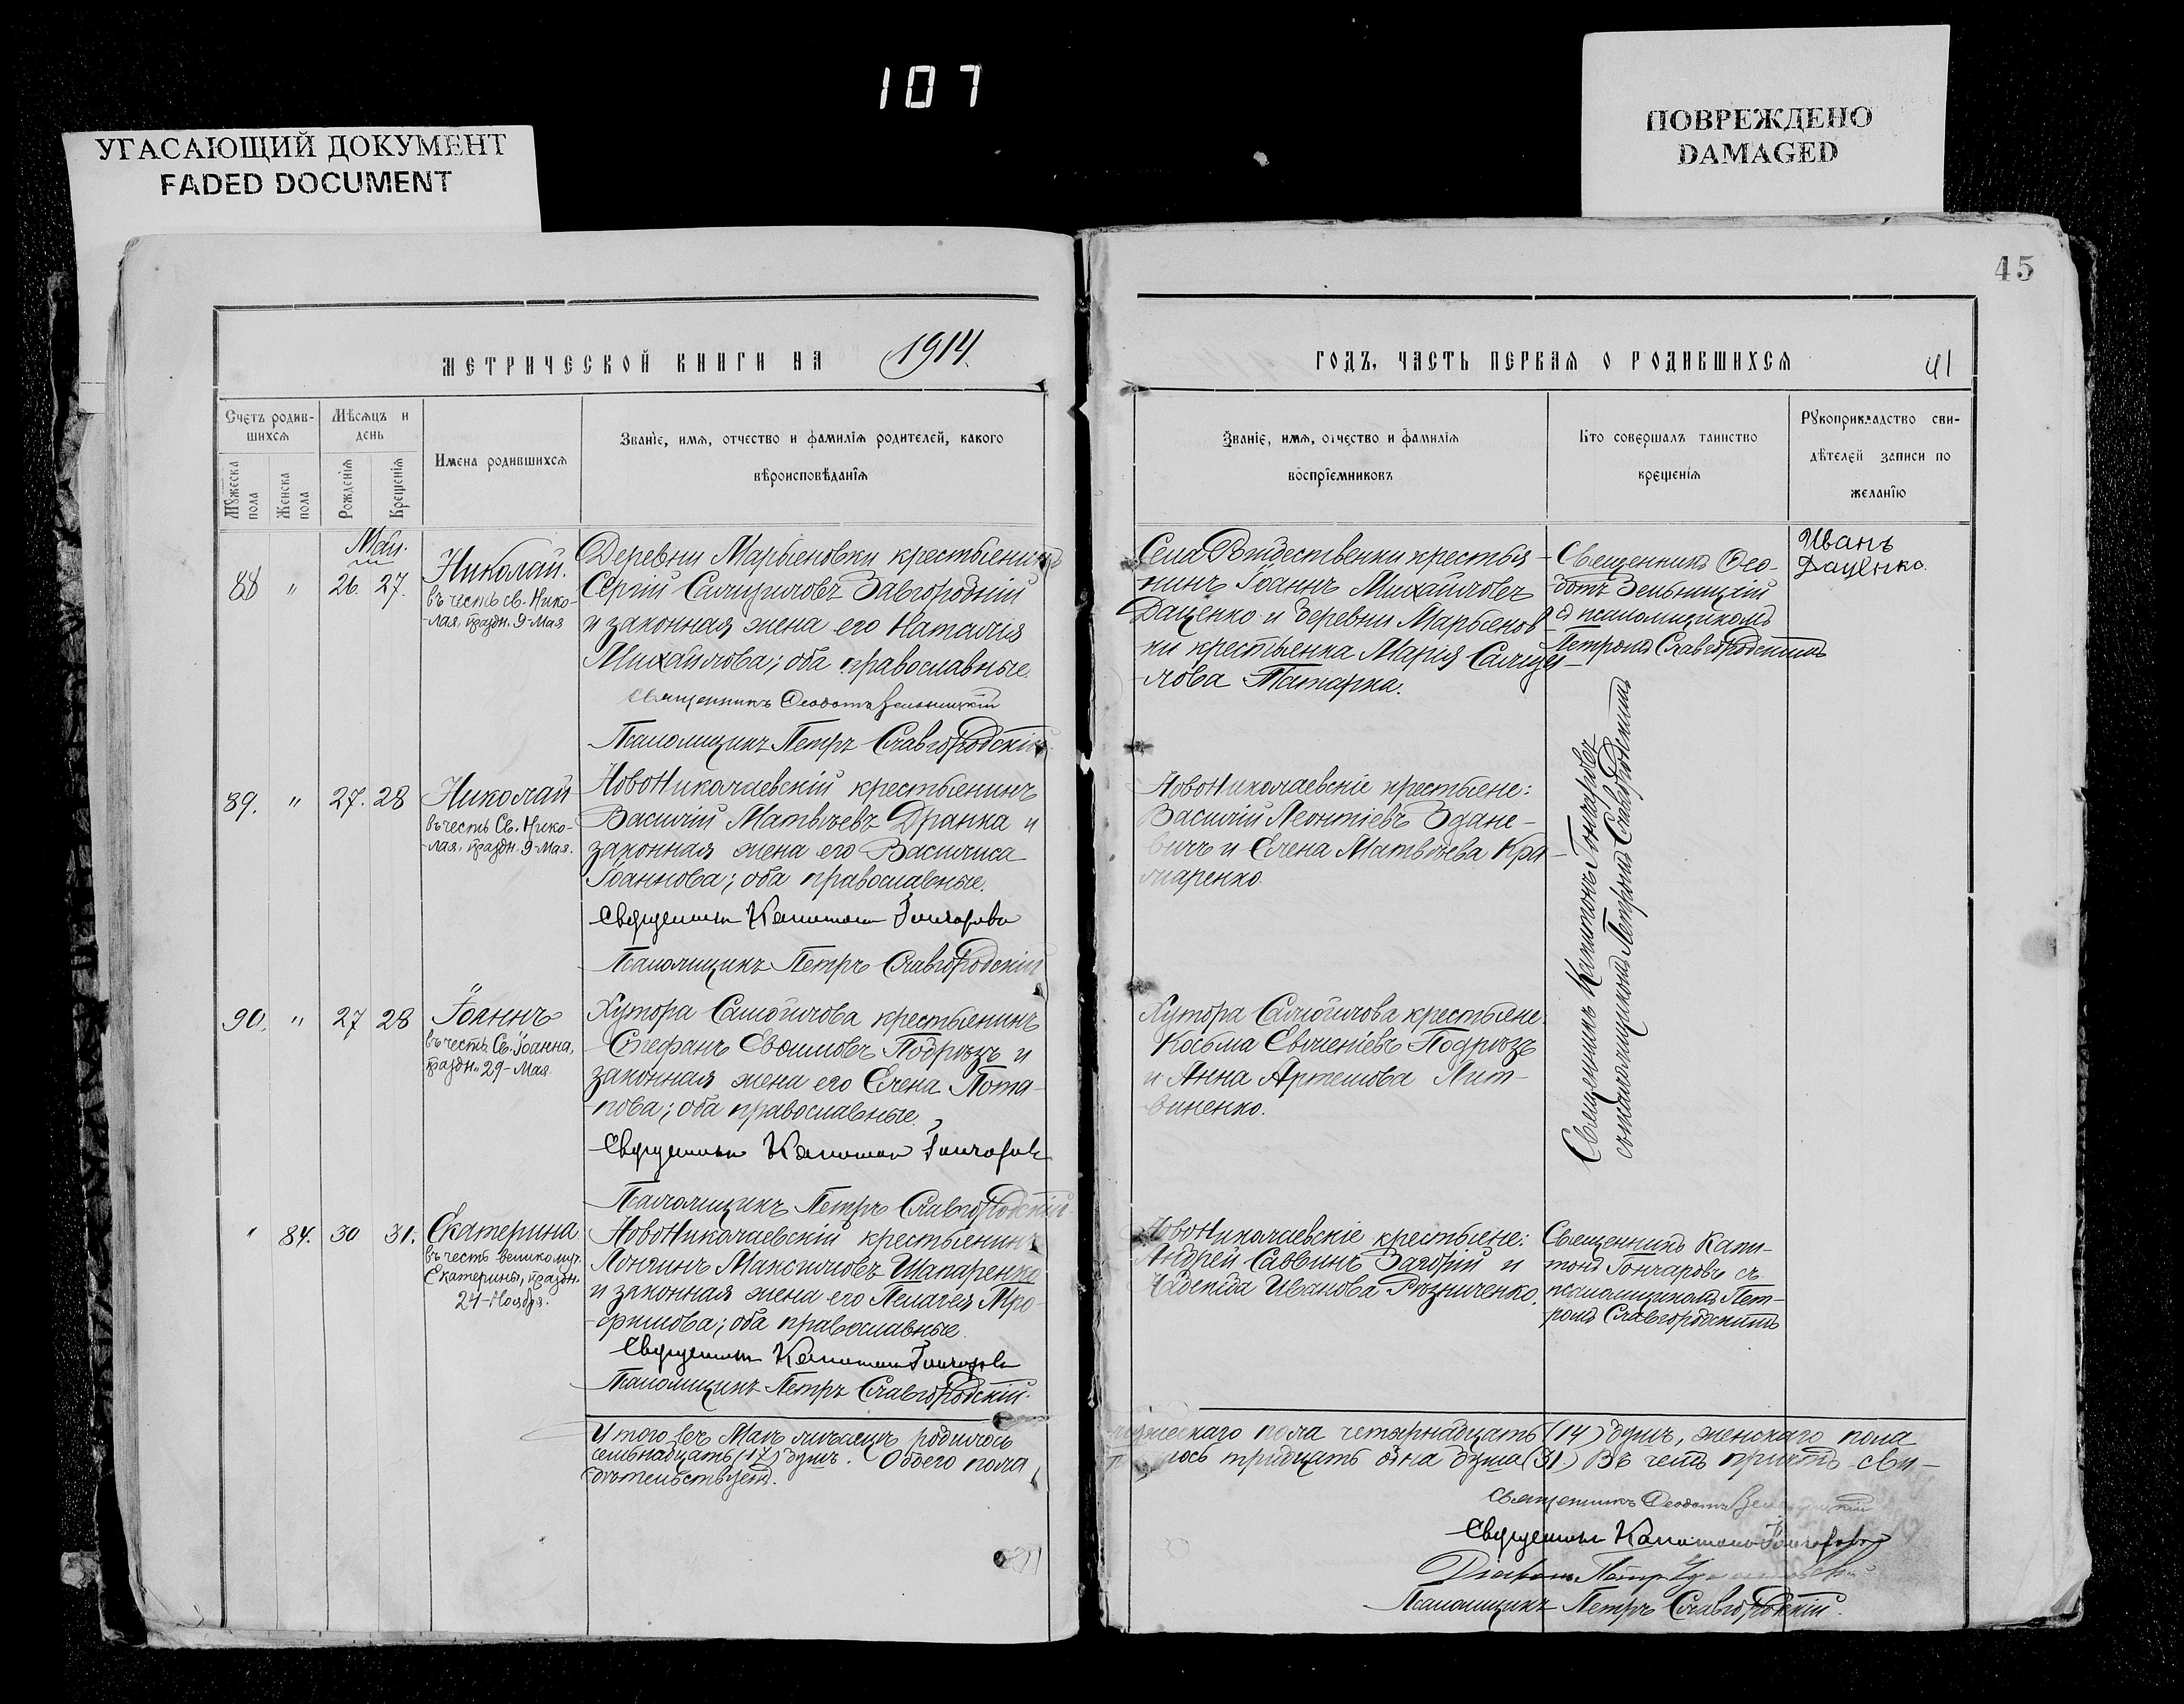 107
УГАСАЮЩИЙ ДОКУМЕНТ
FADED DOCUMENT
ПОВРЕЖДЕНО
DAMAGED
45
МЕТРИЧЕСКОЙ КНИГИ НА 1914
Счетъ родив-
шихся
Мужеска
пола
Женска
пола
Мѣсяцъ и
день
Рожденія
Крещенія
Имена родившихся
Званіе, имя, отчество и фамилія родителей, какого
вѣроисповѣданія
Май.
88 " 26. 27.
Николай.
въ честь св. Нико-
-лая, праздн. 9-Мая
Деревни Марьеновки крестьянинъ
Сергій Завгородній
и законная жена его Наталія
Михайлова; оба православные.
Священникъ Ѳеодотъ Зельницкій
Псаломщикъ Петръ Славгородскій
89. " 27. 28
Николай
въ честь Св. Нико-
-лая, праздн. 9-Мая.
НовоНиколаевскій крестьянинъ
Василій Матвѣевъ Дранка и
законная жена его Василиса
Іоаннова; оба православные.
Священникъ Капитонъ Гончаровъ
Псаломщикъ Петръ Славгородскій
90. " 27 28
Іоаннъ
въ честь Св. Іоанна,
праздн. 29-Мая
Хутора Самойлова крестьянинъ
Стефанъ Подрѣзъ и
законная жена его Елена Пота-
-пова; оба православные.
Священникъ Капитонъ Гончаровъ
Псаломщикъ Петръ Славгородскій
" 84. 30 31.
Екатерина
въ честь великомуч.
Екатерины, праздн.
24-Ноября.
НовоНиколаевскій крестьянинъ
Лонгинъ Максимовъ Шапаренко
и законная жена его Пелагея Тро-
-фимова; оба православные.
Священникъ Капитонъ Гончаровъ
Псаломщикъ Петръ Славгородскій.
Итого въ Маѣ мѣсяцѣ родилось
семьнадцать (17) душъ. Обоего пола
дѣтельствуетъ.
ГОДЪ, ЧАСТЬ ПЕРВАЯ О РОДИВШИХСЯ
41
Званіе, имя, отчество и фамилія
воспріемниковъ
Кто совершалъ таинство
крещенія
Рукоприкладство сви-
дѣтелей записи по
желанію
Села Рождественки крестья-
нинъ Іоаннъ Михайловъ
Даценко и деревни Марьенов-
ки крестьянка Марія Самуи-
-лова Татарка.
Священникъ Ѳео-
дотъ Зельницкій
съ псаломщикомъ
Петромъ Славгородскимъ
Иванъ
Даценко.
НовоНиколаевскіе крестьяне:
Василій Леонтіевъ Здане-
вичъ и Елена Матвѣева Кра-
маренко.
Священникъ Капитонъ Гончаровъ
съ псаломщикомъ Петромъ Славгородскимъ
Хутора Самойлова крестьяне
Косьма Евгеніевъ Подрѣзъ
и Анна Артемова Лит-
виненко.
НовоНиколаевскіе крестьяне:
Андрей Саввинъ Загорій и
Надежда Иванова Рѣзниченко.
Священникъ Капи-
тонъ Гончаровъ съ
псаломщикомъ Пет-
ромъ Славгородскимъ
мужескаго пола четырнадцать (14) душъ, женскаго пола
тридцать одна душа (31) Въ чемъ причтъ сви-
Священникъ Ѳеодотъ Зельницкій
Священникъ Капитонъ Гончаровъ
Діаконъ Петръ
Псаломщикъ Петръ Славгородскій.